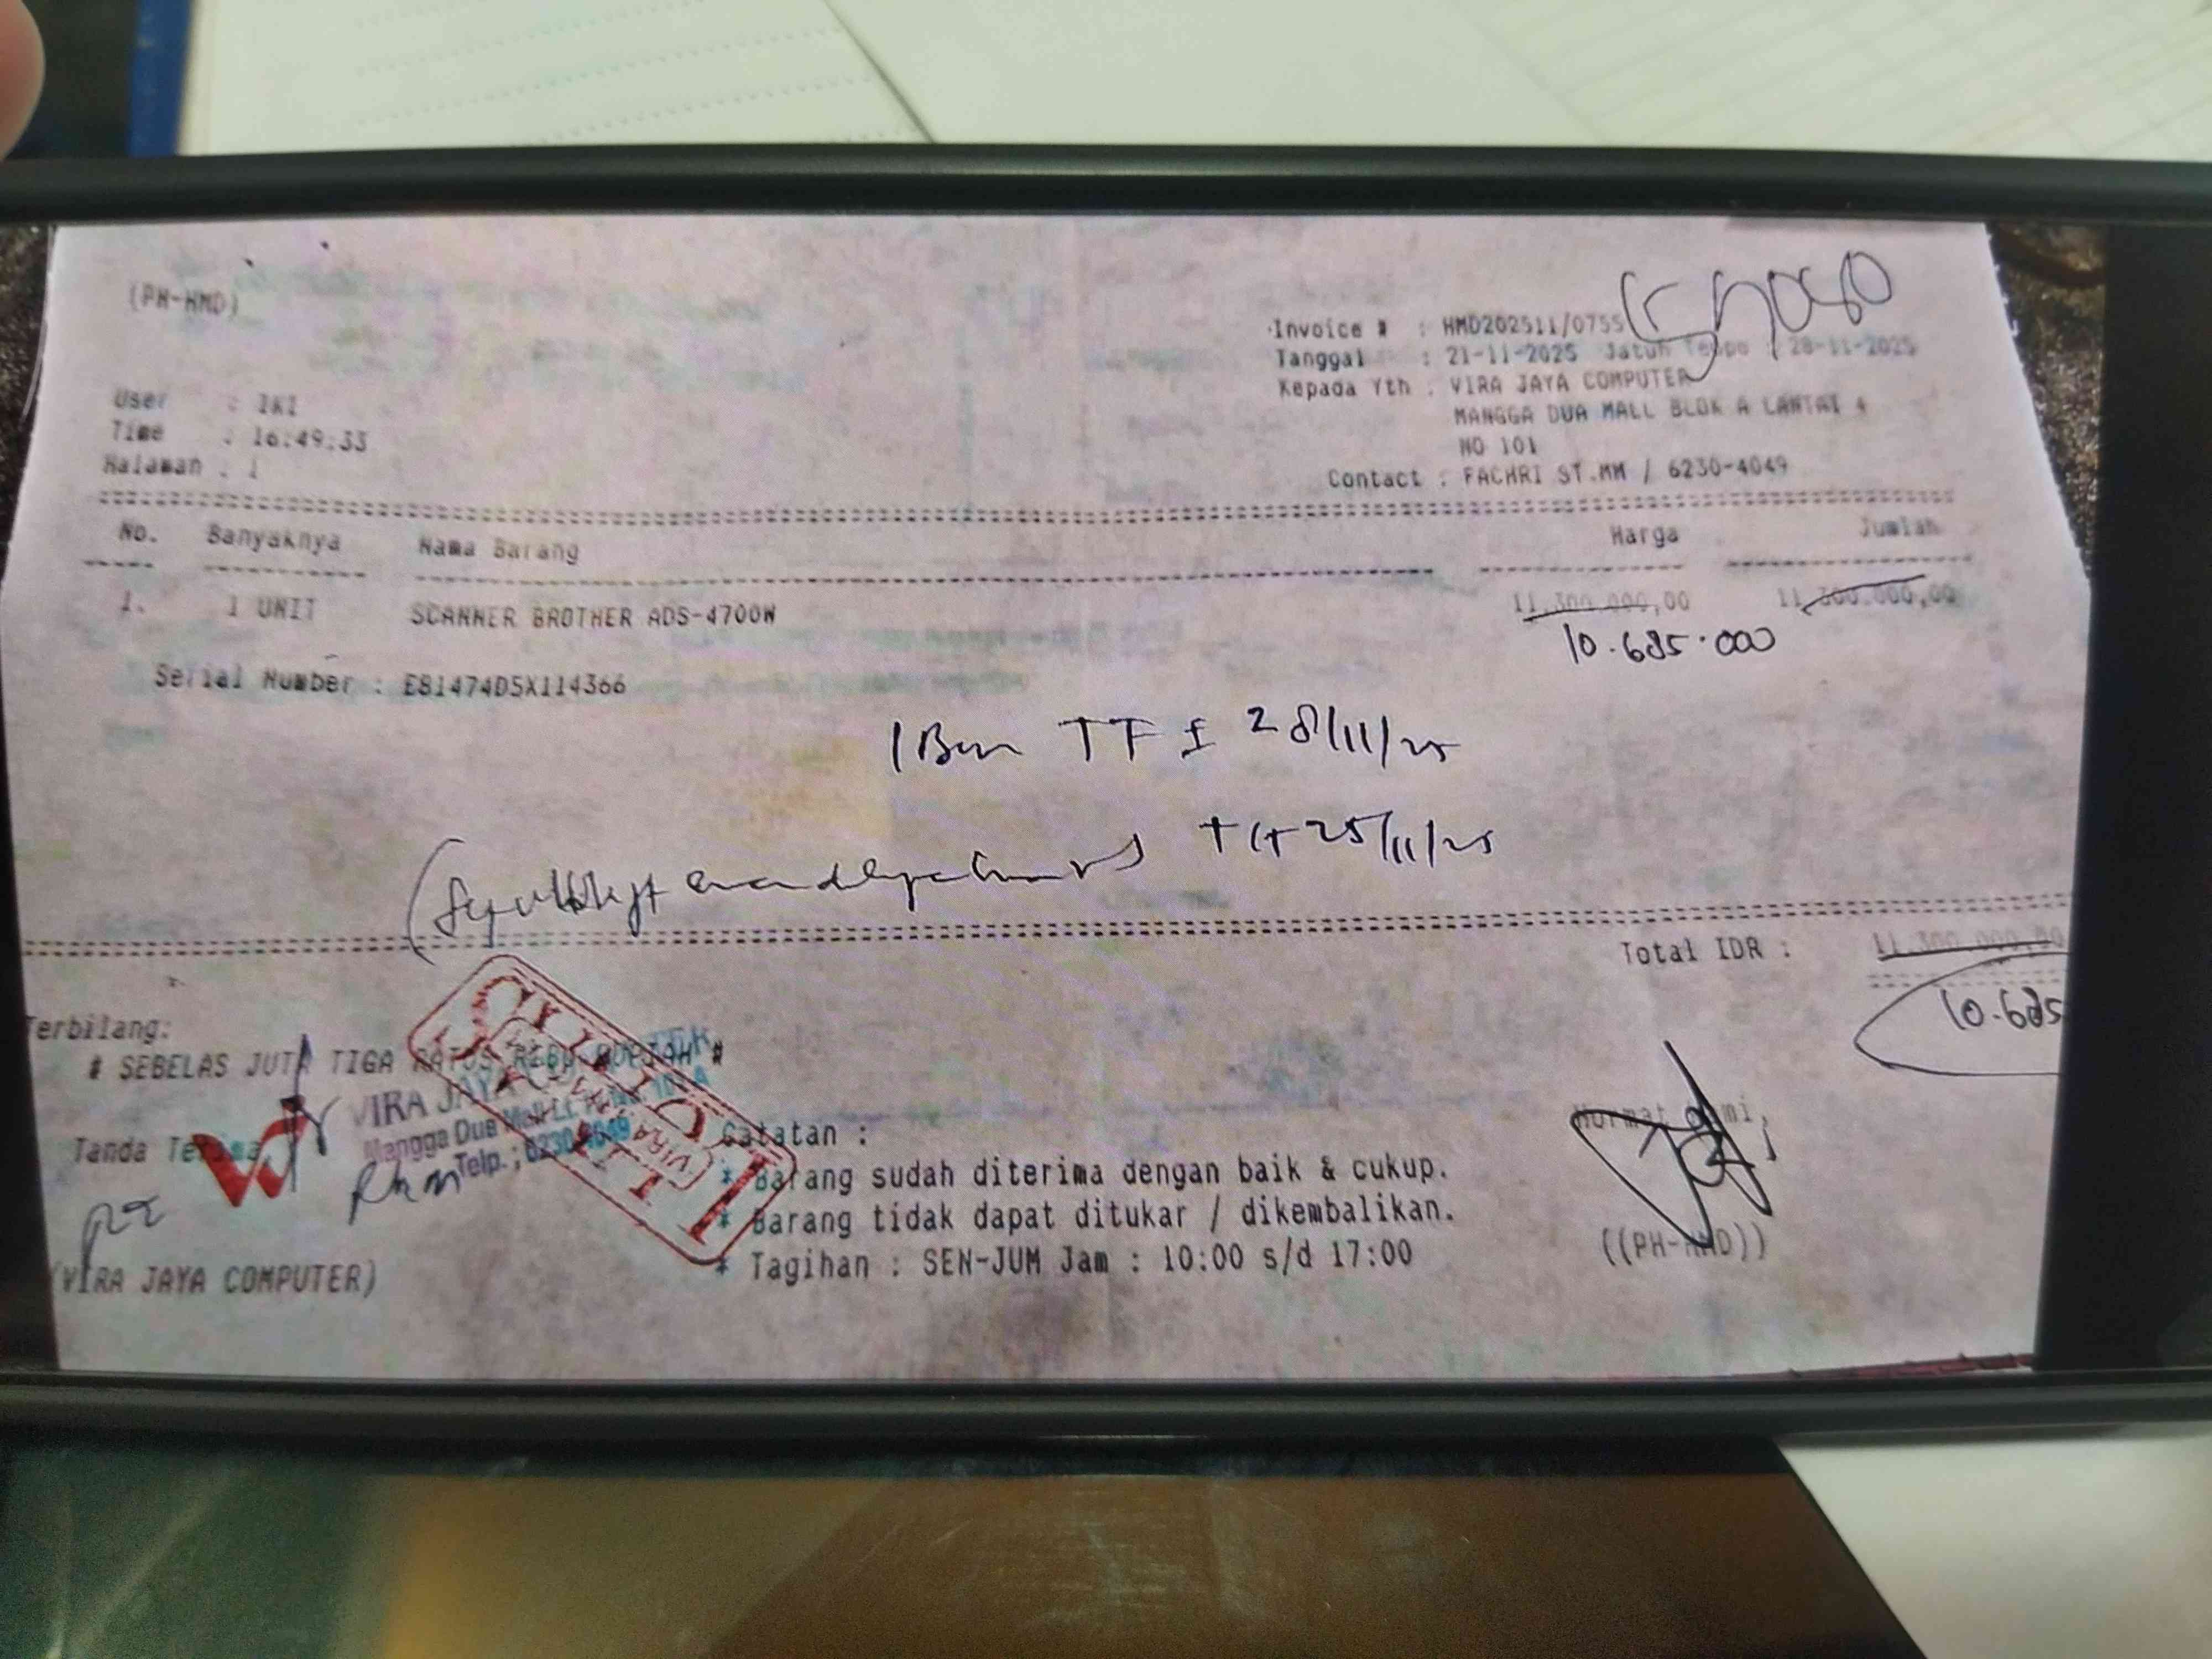 (PH-HMD)
Invoice # : HMD202511/0755
Tanggal : 21-11-2025 Jatuh Tempo : 28-11-2025
Kepada Yth : VIRA JAYA COMPUTER
MANGGA DUA MALL BLOK A LANTAI 4
NO 101
Contact : FACHRI ST.MM / 6230-4049
User : IKI
Time : 16:49:33
Halaman : 1
No. Banyaknya Nama Barang Harga Jumlah
1. 1 UNIT SCANNER BROTHER ADS-4700W 11.300.000,00 11.300.000,00
10.685.000
Serial Number : E81474D5X114366
TF ± 28/11/25
25/11/25
Total IDR : 11.300.000,00
10.685
Terbilang:
# SEBELAS JUTA TIGA RATUS RIBU RUPIAH #
VIRA JAYA
Mangga Dua Mall Lt.
Telp. ; 6230
Tanda Terima,
(VIRA JAYA COMPUTER)
Catatan :
* Barang sudah diterima dengan baik & cukup.
* Barang tidak dapat ditukar / dikembalikan.
* Tagihan : SEN-JUM Jam : 10:00 s/d 17:00
Hormat Kami,
((PH-HMD))